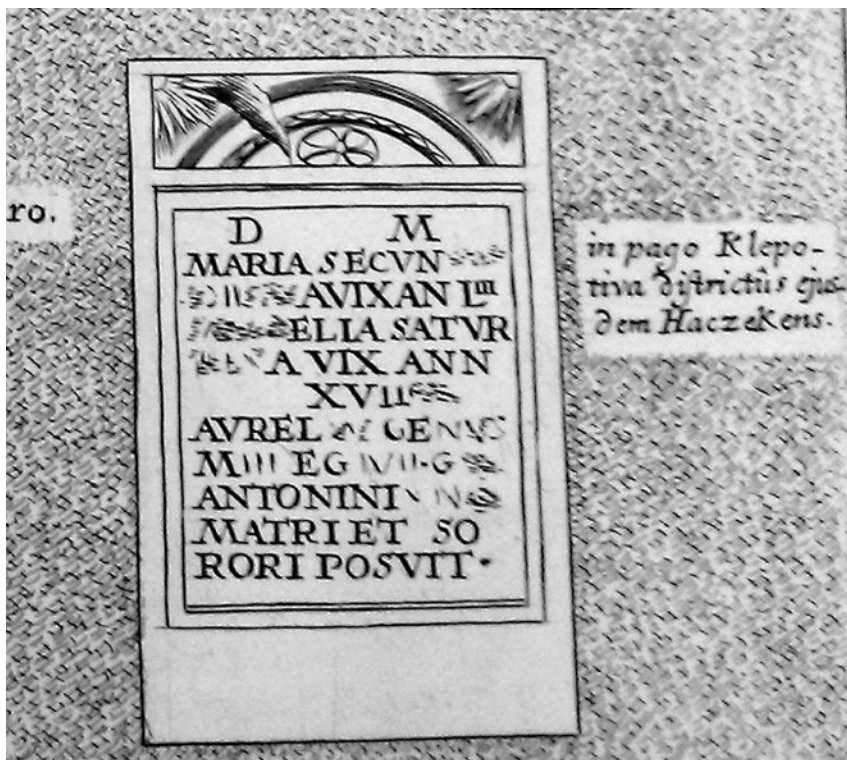 ro.
D M
MARIA SECVN
AVIXAN LIII
ELIA SATVR
A VIX ANN
XVII
AVREL
ANTONINI
MATRI ET SO
RORI POSVIT·
in pago Klepo-
tiva districtûs ejus-
dem HaczeKens.